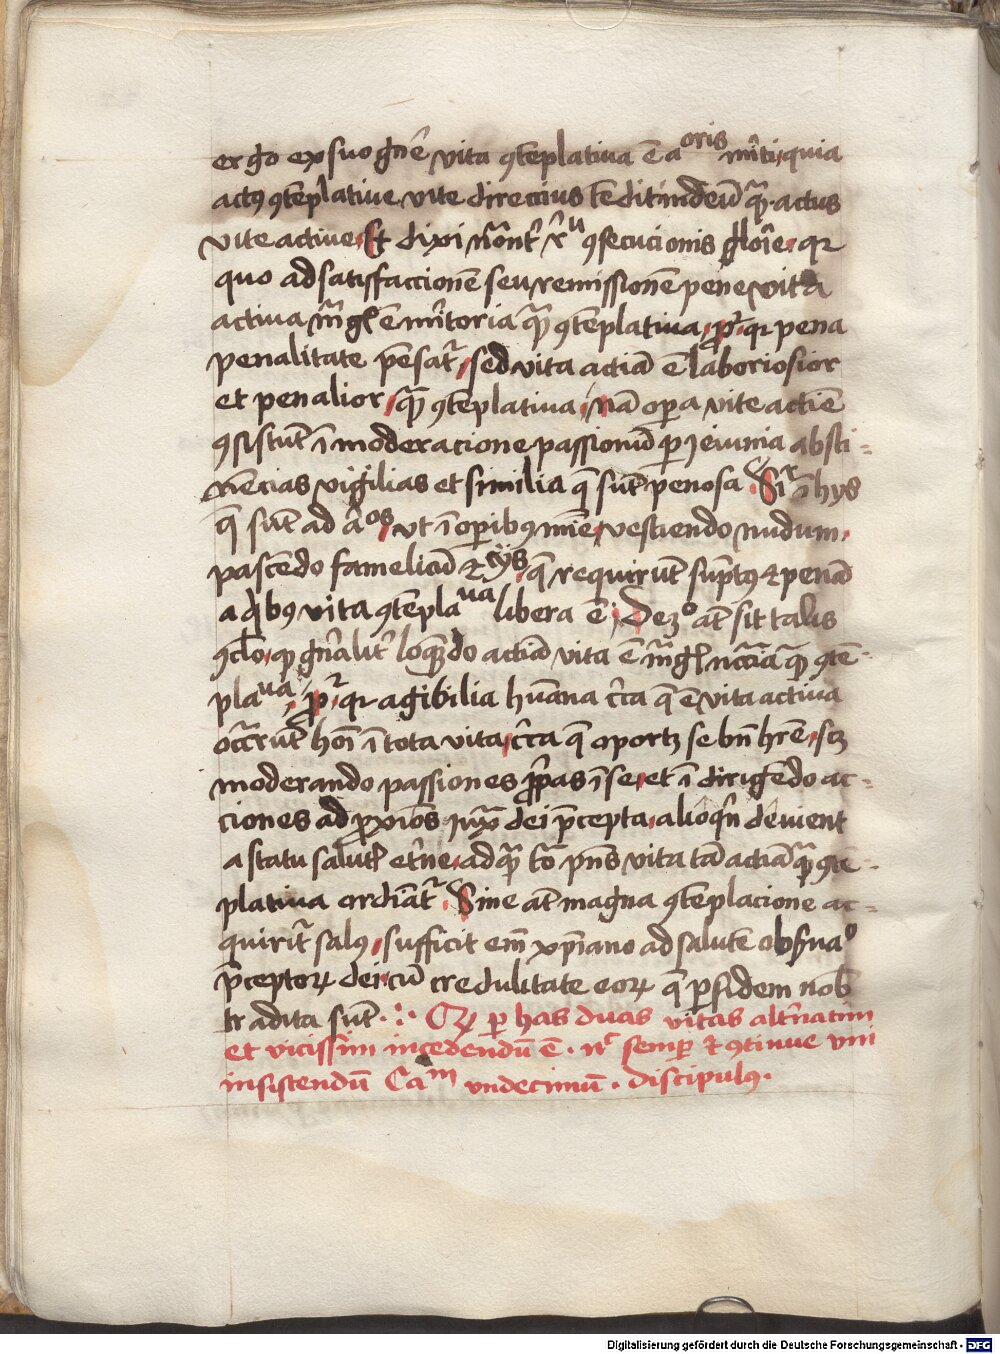 ergo ex suo gn̄e vita ꝯteplatiua ē aoris m̄iti quia
actꝰ ꝯteplatiue vite direccius tēdit in deū qͣꝫ actus
vite actiue Et dixi ꝯsecucionis gloīe qꝛ
quo ad satisfaccionē seu remissionē pene vita
actiua mgͥ ē m̄itoria qͣꝫ ꝯteplatiua pꝛ qꝛ pena
penalitate pēsat᷑ sed vita actiā ē laboriosior
et penalior qͣꝫ ꝯteplatiua nā oꝑa vite actiē
ꝯsistūt ī moderacione passionū ꝑ ieiunia absti-
nēcias vigilias et similia q̄ sūt penosa Siͬ ī hys
q̄ sūt ad aͫos vt ī oꝑibꝰ mīe vestiendo nudum
pascēdo famelicū ⁊ cͥys q̄ requirūt sūptꝰ ⁊ penā
a qͥbꝰ vita ꝯteplaua libera ē Dezͦ at̄ sit talis
ꝯclo qꝫ gn̄alit᷑ loqͣꝫdo actiā vita ē mgͥ nccīa qͣꝫ ꝯtē-
plaua pꝛ qꝛ agibilia hūana cͥca q̄ ē vita actiua
occ̄rūt hoī ī tota vita cͥca q̄ oportꝫ se bn̄ hr̄e scꝫ
moderando passiones ꝓp̄as ī se et ī dirigēdo ac-
ciones ad ꝓxīos iuxͣ dei p̄cepta alioqͥn deuient
a statu salutꝭ et̄ne ad qͣꝫ tn̄ pn̄s vita tā actiā qͣꝫ ꝯtē-
platiua ordīat᷑ Sine at̄ magna ꝯteplacione ac-
quirit᷑ salꝰ sufficit em̄ xp̄iano ad salutē obs̄uaͦ
p̄ceptoꝝ dei cū credulitate eoꝝ q̄ ꝑ fidem nob̄
tradita sūt. Qꝫ ꝑ has duas vitas alt̄natim
et vicissim incedendū ē. nͨ semꝑ ⁊ ꝯtinue vni
insistendū Caͫ vndecimū. discipulꝰ.
Digitalisierung gefördert durch die Deutsche Forschungsgemeinschaft - DFG